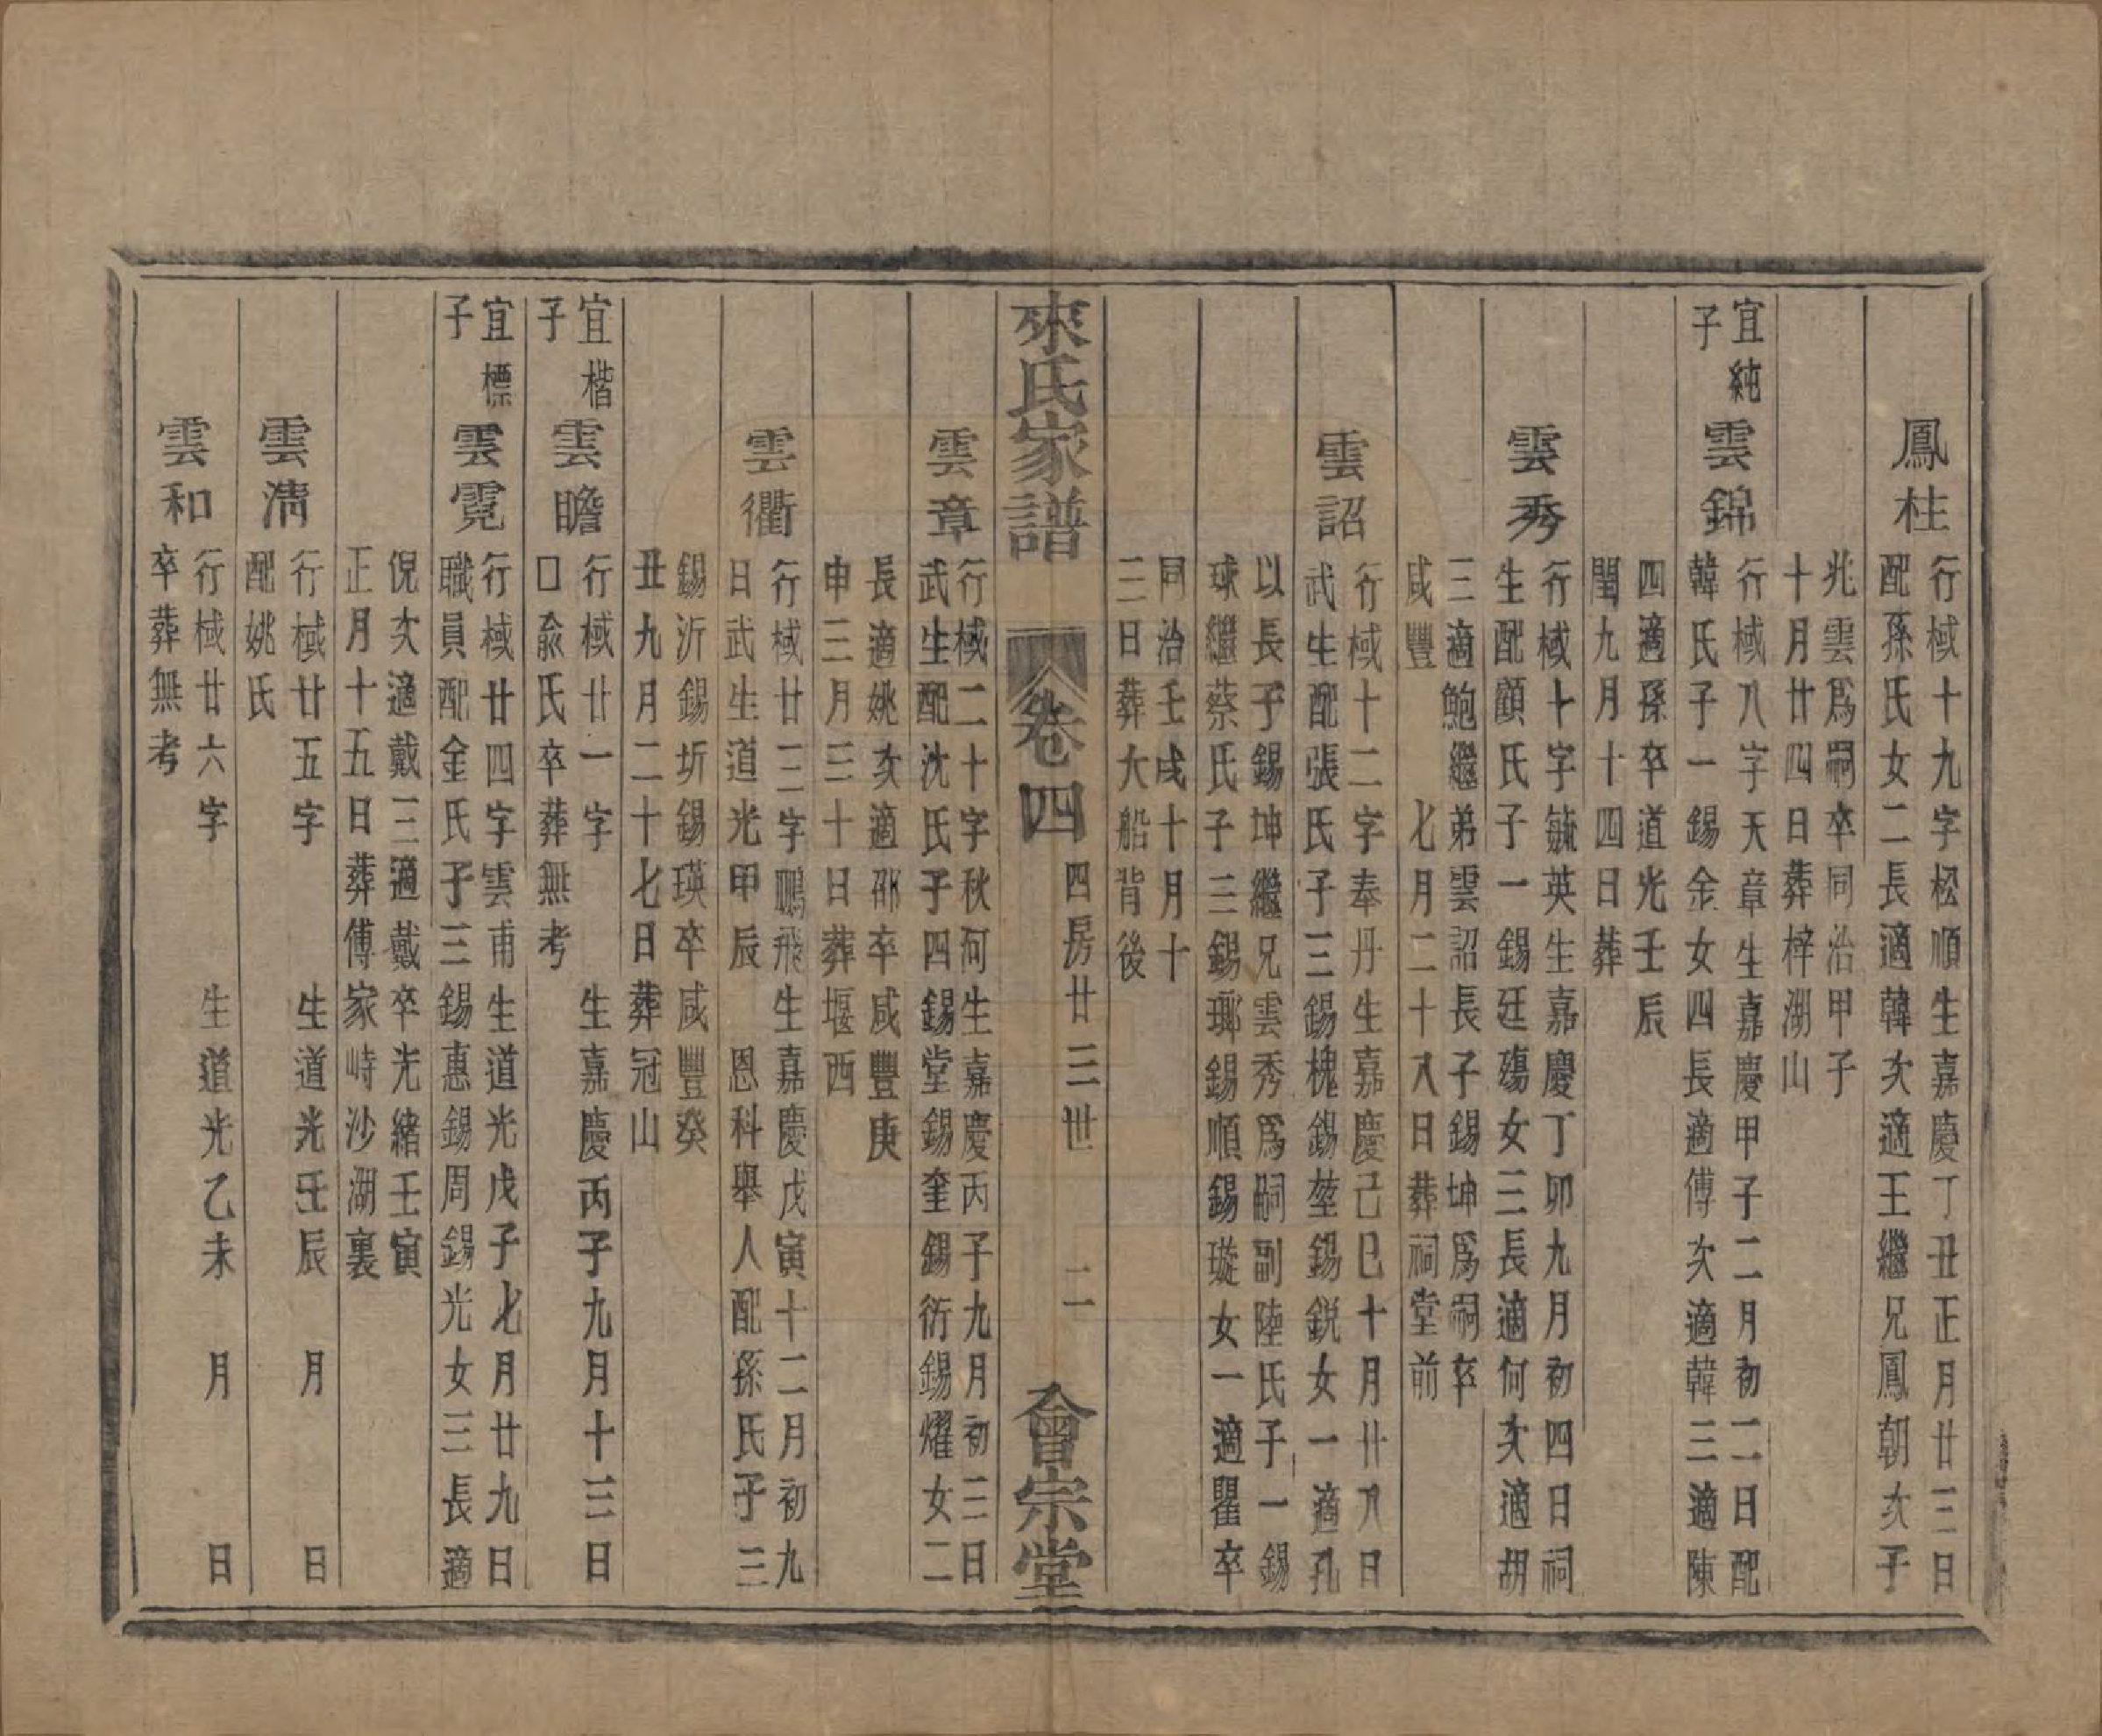 鳳柱
行棫十九字松順生嘉慶丁丑正月廿三日
配孫氏女二長適韓次適王繼兄鳳朝次子
兆雲爲嗣卒同治甲子
十月廿四日葬梓湖山
宜純
子
雲錦
行棫八字天章生嘉慶甲子二月初二日配
韓氏子一錫金女四長適傅次適韓三適陳
四適孫卒道光壬辰
閏九月十四日葬
雲秀
行棫十字毓英生嘉慶丁卯九月初四日祠
生配顧氏子一錫廷殤女三長適何次適胡
三適鮑繼弟雲詔長子錫坤爲嗣卒
咸豐 七月二十八日葬祠堂前
雲詔
行棫十二字奉丹生嘉慶己巳十月廿八日
武生配張氏子三錫槐錫堃錫銳女一適孔
以長子錫坤繼兄雲秀爲嗣副陸氏子一錫
球繼蔡氏子三錫瑯錫順錫璇女一適瞿卒
同治壬戌十月十
三日葬大船背後
來氏家譜
卷四
四房廿三世
二
會宗堂
雲章
行棫二十字秋河生嘉慶丙子九月初三日
武生配沈氏子四錫堂錫奎錫衍錫燿女二
長適姚次適邵卒咸豐庚
申三月三十日葬堰西
雲衢
行棫廿三字鵬飛生嘉慶戊寅十二月初九
日武生道光甲辰 恩科舉人配孫氏子三
錫沂錫圻錫瑛卒咸豐癸
丑九月二十七日葬冠山
宜楷
子
雲瞻
行棫廿一字 生嘉慶丙子九月十三日
口兪氏卒葬無考
宜標
子
雲霓
行棫廿四字雲甫生道光戊子七月廿九日
職員配金氏子三錫惠錫周錫光女三長適
倪次適戴三適戴卒光緒壬寅
正月十五日葬傅家峙沙湖裏
雲清
行棫廿五字 生道光壬辰 月 日
配姚氏
雲和
行棫廿六字 生道光乙未 月 日
卒葬無考